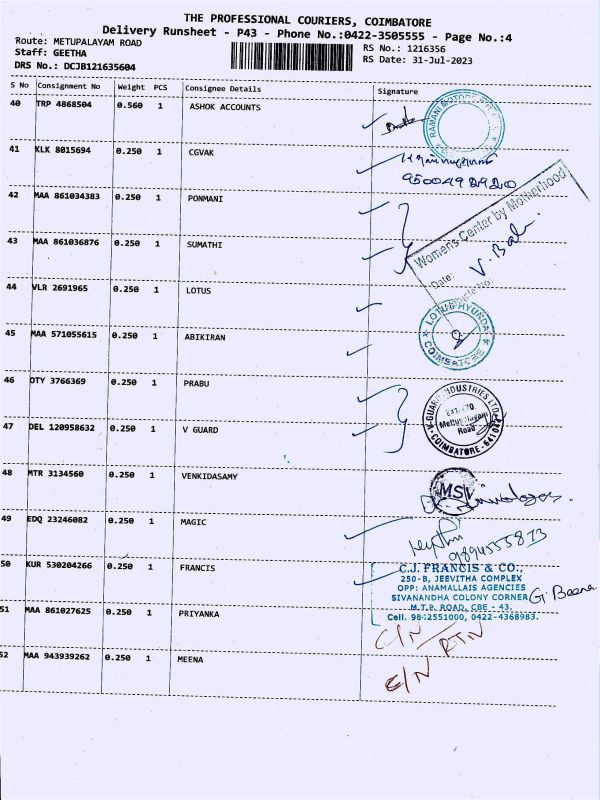 THE PROFESSIONAL COURIERS, COIMBATORE
Delivery Runsheet - P43 - Phone No.:0422-3505555 - Page No.:4
Route: METUPALAYAM ROAD
RS No.: 1216356
Staff: GEETHA
RS Date: 31-Jul-2023
DRS No.: DCJB121635604
S No Consignment No Weight PCS Consignee Details Signature
40 TRP 4868504 0.560 1 ASHOK ACCOUNTS
RAMANI MOTORS
41 KLK 8015694 0.250 1 CGVAK
9500492920
42 MAA 861034383 0.250 1 PONMANI
Womens Center by Motherhood
Date:
V. Bab
43 MAA 861036876 0.250 1 SUMATHI
44 VLR 2691965 0.250 1 LOTUS
LOTUS HYUNDAI
COIMBATORE
45 MAA 571055615 0.250 1 ABIKIRAN
46 OTY 3766369 0.250 1 PRABU
V-GUARD INDUSTRIES LTD
Road
COIMBATORE
47 DEL 120958632 0.250 1 V GUARD
48 MTR 3134560 0.250 1 VENKIDASAMY
MSV
49 EDQ 23246082 0.250 1 MAGIC
9894555873
50 KUR 530204266 0.250 1 FRANCIS
C.J. FRANCIS & CO.,
250-B, JEEVITHA COMPLEX
OPP: ANAMALLAIS AGENCIES
SIVANANDHA COLONY CORNER
M.T.P. ROAD, CBE - 43.
Cell. 9842551000, 0422-4368983.
G. Beena
51 MAA 861027625 0.250 1 PRIYANKA
C/N RTN
52 MAA 943939262 0.250 1 MEENA
C/N